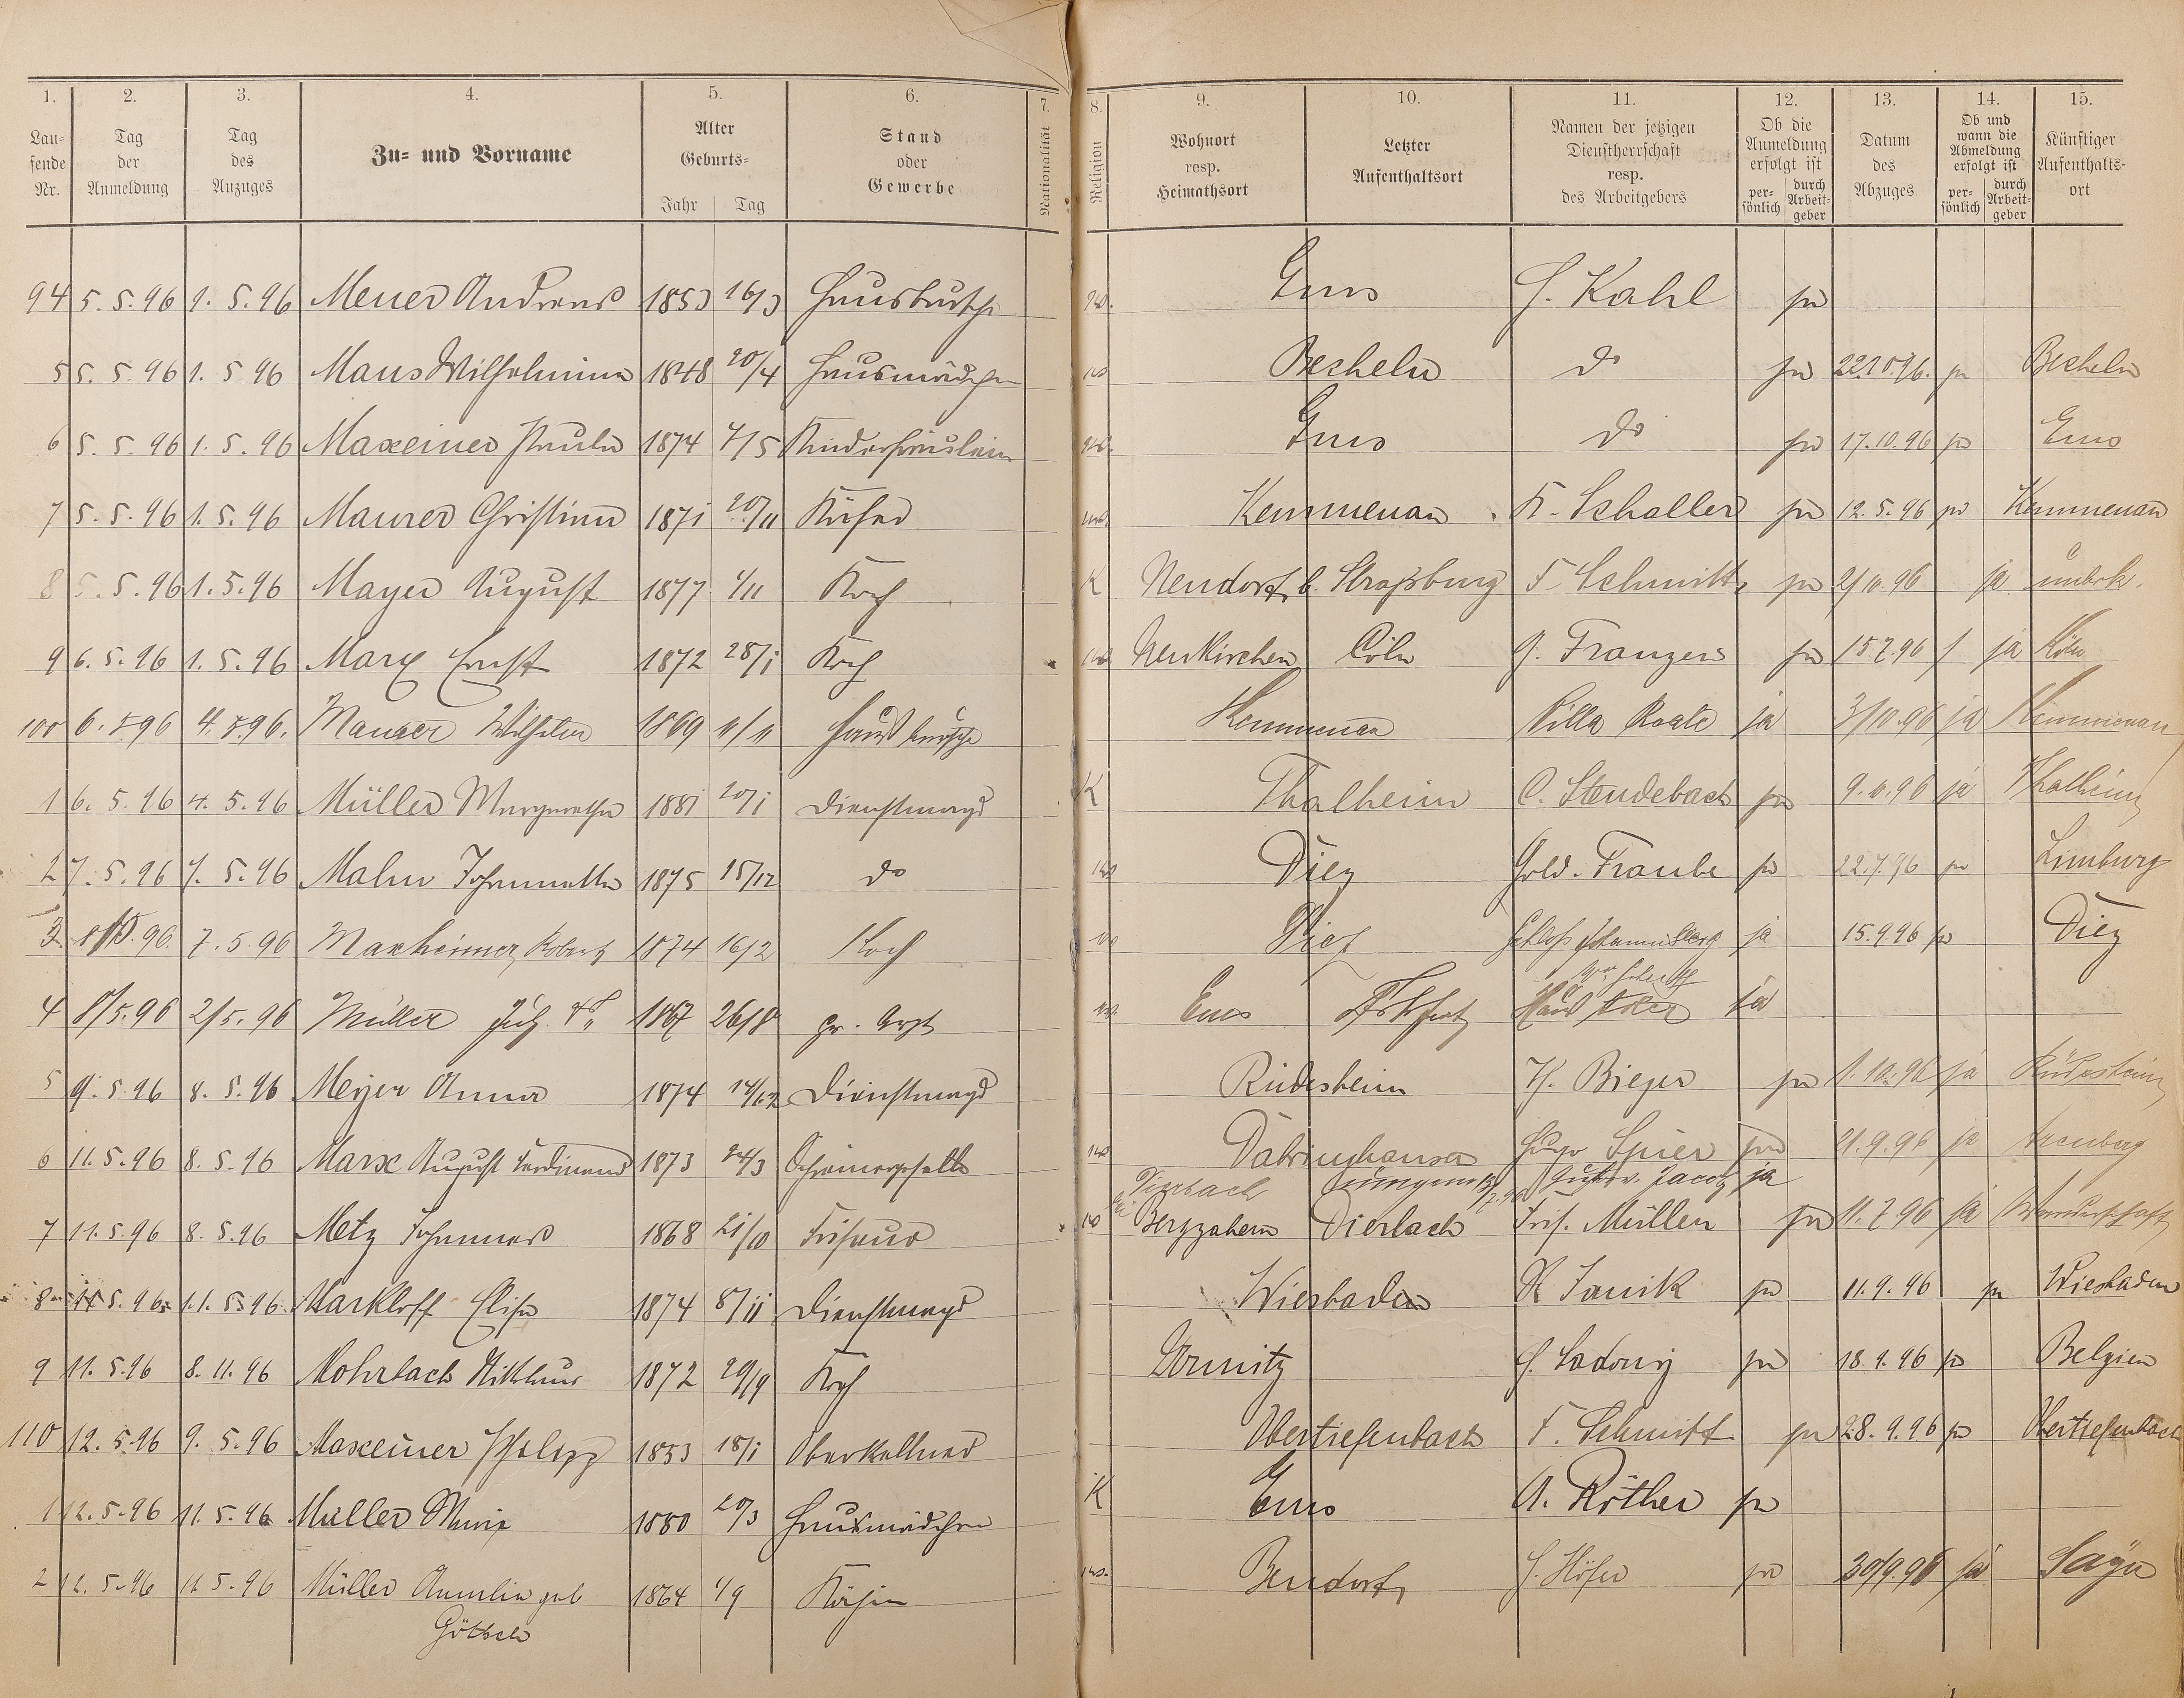 1. 2. 3. 4. 5. 6. 7. 8. 9. 10. 11. 12. 13. 14. 15.
Lau-
fende
Nr.
Tag
der
Anmeldung
Tag
des
Anzuges
Zu- und Vorname
Alter
Geburts-
Jahr Tag
Stand
oder
Gewerbe
Nationalität
Religion
Wohnort
resp.
Heimathsort
Letzter
Aufenthaltsort
Namen der jetzigen
Dienstherrschaft
resp.
des Arbeitgebers
Ob die
Anmeldung
erfolgt ist
per-
sönlich
durch
Arbeit-
geber
Datum
des
Abzuges
Ob und
wann die
Abmeldung
erfolgt ist
per-
sönlich
durch
Arbeit-
geber
Künftiger
Aufenthalts-
ort
94 5.5.96 1.5.96 Meuer Andreas 1853 16/3 Hausbursche Ems H. Kahl ja
5 5.5.96 1.5.96 Maus Wilhelmine 1848 20/4 Hausmädchen Becheln do ja 22.10.96. ja Becheln
6 5.5.96 1.5.96 Maxeiner Paula 1874 7/5 Kinderfräulein Ems do ja 17.10.96 ja Ems
7 5.5.96 1.5.96 Maurer Christian 1871 20/11 Küfer Kemmenau K. Schaller ja 12.5.96 ja Kemmenau
8 5.5.96 1.5.96 Mayer August 1877 1/11 Koch K Neudorf b. Straßburg F. Schmitt ja 2/10 96 ja unbek.
9 6.5.96 1.5.96 Marx Ernst 1872 28/1 Koch Neukirchen Cöln J. Franzen ja 15.7.96 ja Köln
100 6.5.96 4.5.96. Maurer Wilhelm 1869 11/11 Hausbursche Kemmenau Villa Roate ja 3/10.96 ja Kemmenau
1 6.5.96 4.5.96 Müller Margaretha 1881 20/1 Dienstmagd K Thalheim C. Steudebach ja 9.10.96 ja Thalheim
2 7.5.96 7.5.96 Malm Johannette 1875 15/12 do Diez Gold. Traube ja 22.7.96 ja Limburg
3 8/5.96. 7.5.96 Maxheimer Robert 1874 16/2 Koch Diez Schloß Johannisberg ja 15.9.96 ja Diez
4 8/5.96 2/5.96 Müller 1867 26/8 pr. Arzt Ems Frkfurt Haus ja
5 9.5.96 8.5.96 Meyer Anna 1874 14/12 Dienstmagd Rüdesheim H. Bieger ja 1.10.96 ja Rüdesheim
6 11.5.96 8.5.96 Marx August Ferdinand 1873 24/3 Schreinergeselle Dabringhausen Hugo Spier ja 21.9.96 ja Arenberg
Dierbach Gustav Jacob ja
7 11.5.96 8.5.96 Metz Johannes 1868 21/10 Friseur Bergzabern Dierbach Fris. Müller ja 11.7.96 ja Wanderschaft
8 11.5.96 11.5.96 Markloff Elise 1874 8/11 Dienstmagd Wiesbaden K Janik ja 11.9.96 ja Wiesbaden
9 11.5.96 8.11.96 Mohrbach Nikolaus 1872 20/9 Koch H. Ladowig ja 18.9.96 ja Belgien
110 12.5.96 9.5.96 Maxeiner Philipp 1853 18/1 Oberkellner Obertiefenbach F. Schmitt ja 28.9.96 ja Obertiefenbach
1 12.5.96 11.5.96 Müller Marie 1880 20/3 Hausmädchen K Ems A. Röther ja
2 12.5.96 11.5.96 Müller Amalie geb 1864 1/9 Köchin Bendorf H. Höfer ja 30/9.96 ja Sayn
Götsch